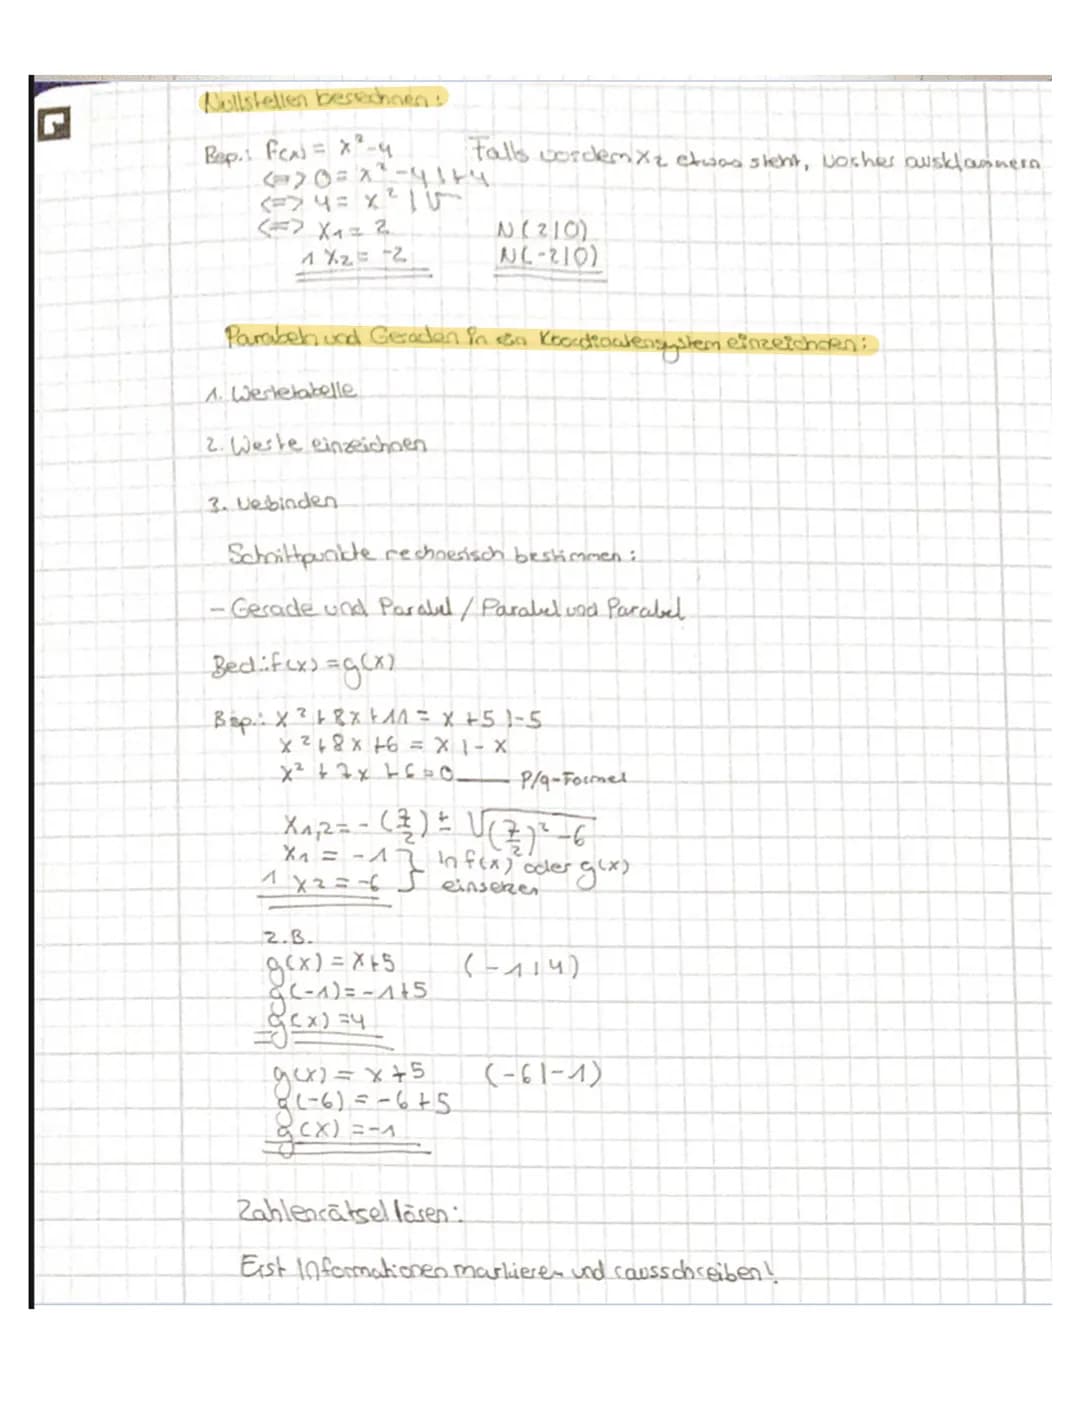 Nullstellen berechnen:
Bsp.: f(x) = x²-4 Falls vor dem x² etwas steht, vorher ausklammern
<=> 0 = x²-4 |+4
<=> 4 = x² |√
<=> x₁ = 2 N(2|0)
∧ x₂ = -2 N(-2|0)
Parabeln und Geraden in ein Koordinatensystem einzeichnen:
1. Wertetabelle
2. Werte einzeichnen
3. Verbinden
Schnittpunkte rechnerisch bestimmen:
- Gerade und Parabel / Parabel und Parabel
Bed.: f(x) = g(x)
Bsp.: x²+8x+11 = x+5 |-5
x²+8x+6 = x |-x
x²+7x+6=0 — P/q-Formel
x₁,₂ = -(7/2) ± √((7/2)²-6
x₁ = -1 } In f(x) oder g(x)
∧ x₂ = -6 } einsetzen
z.B.
g(x) = x+5 (-1|4)
g(-1) = -1+5
g(x) = 4
g(x) = x+5 (-6|-1)
g(-6) = -6+5
g(x) = -1
Zahlenrätsel lösen:
Erst Informationen markieren und rausschreiben!